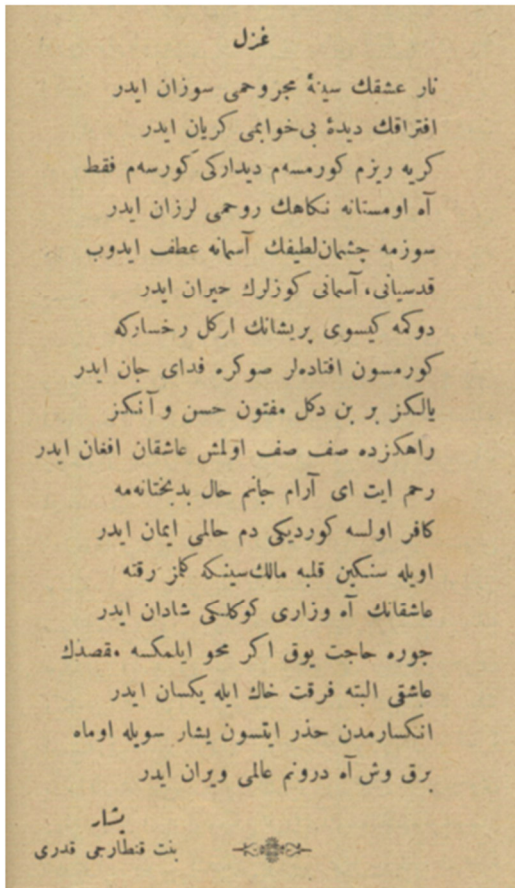 غزل
نار عشقك سینۀ مجروحمی سوزان ایدر
افتراقك دیدۀ بی‌خوابمی كریان ایدر
كریه ریزم كورمسه‌م دیداركی كورسه‌م فقط
آه اومستانه نكاهك روحمی لرزان ایدر
سوزمه چشمان لطیفك آسمانه عطف ایدوب
قدسیانی، آسمانی كوزلرك حیران ایدر
دوكمه كیسوی پریشانك اركل رخساركه
كورمسون افتاده‌لر صوكره فدای جان ایدر
یالكز بر بن دكل مفتون حسن و آنكز
راهكزده صف صف اولمش عاشقان افغان ایدر
رحم ایت ای آرام جانم حال بدبختانه‌مه
كافر اولسه كوردیكی دم حالمی ایمان ایدر
اویله سنكین قلبه مالك‌سینكه كلمز رقته
عاشقانك آه وزاری كوكلكی شادان ایدر
جوره حاجت یوق اكر محو ایلمكسه مقصدك
عاشقی البته فرقت خاك ایله یكسان ایدر
انكسارمدن حذر ایتسون یشار سویله اوماه
برق وش آه درونم عالمی ویران ایدر
یشار
بنت قنطارجی قدری